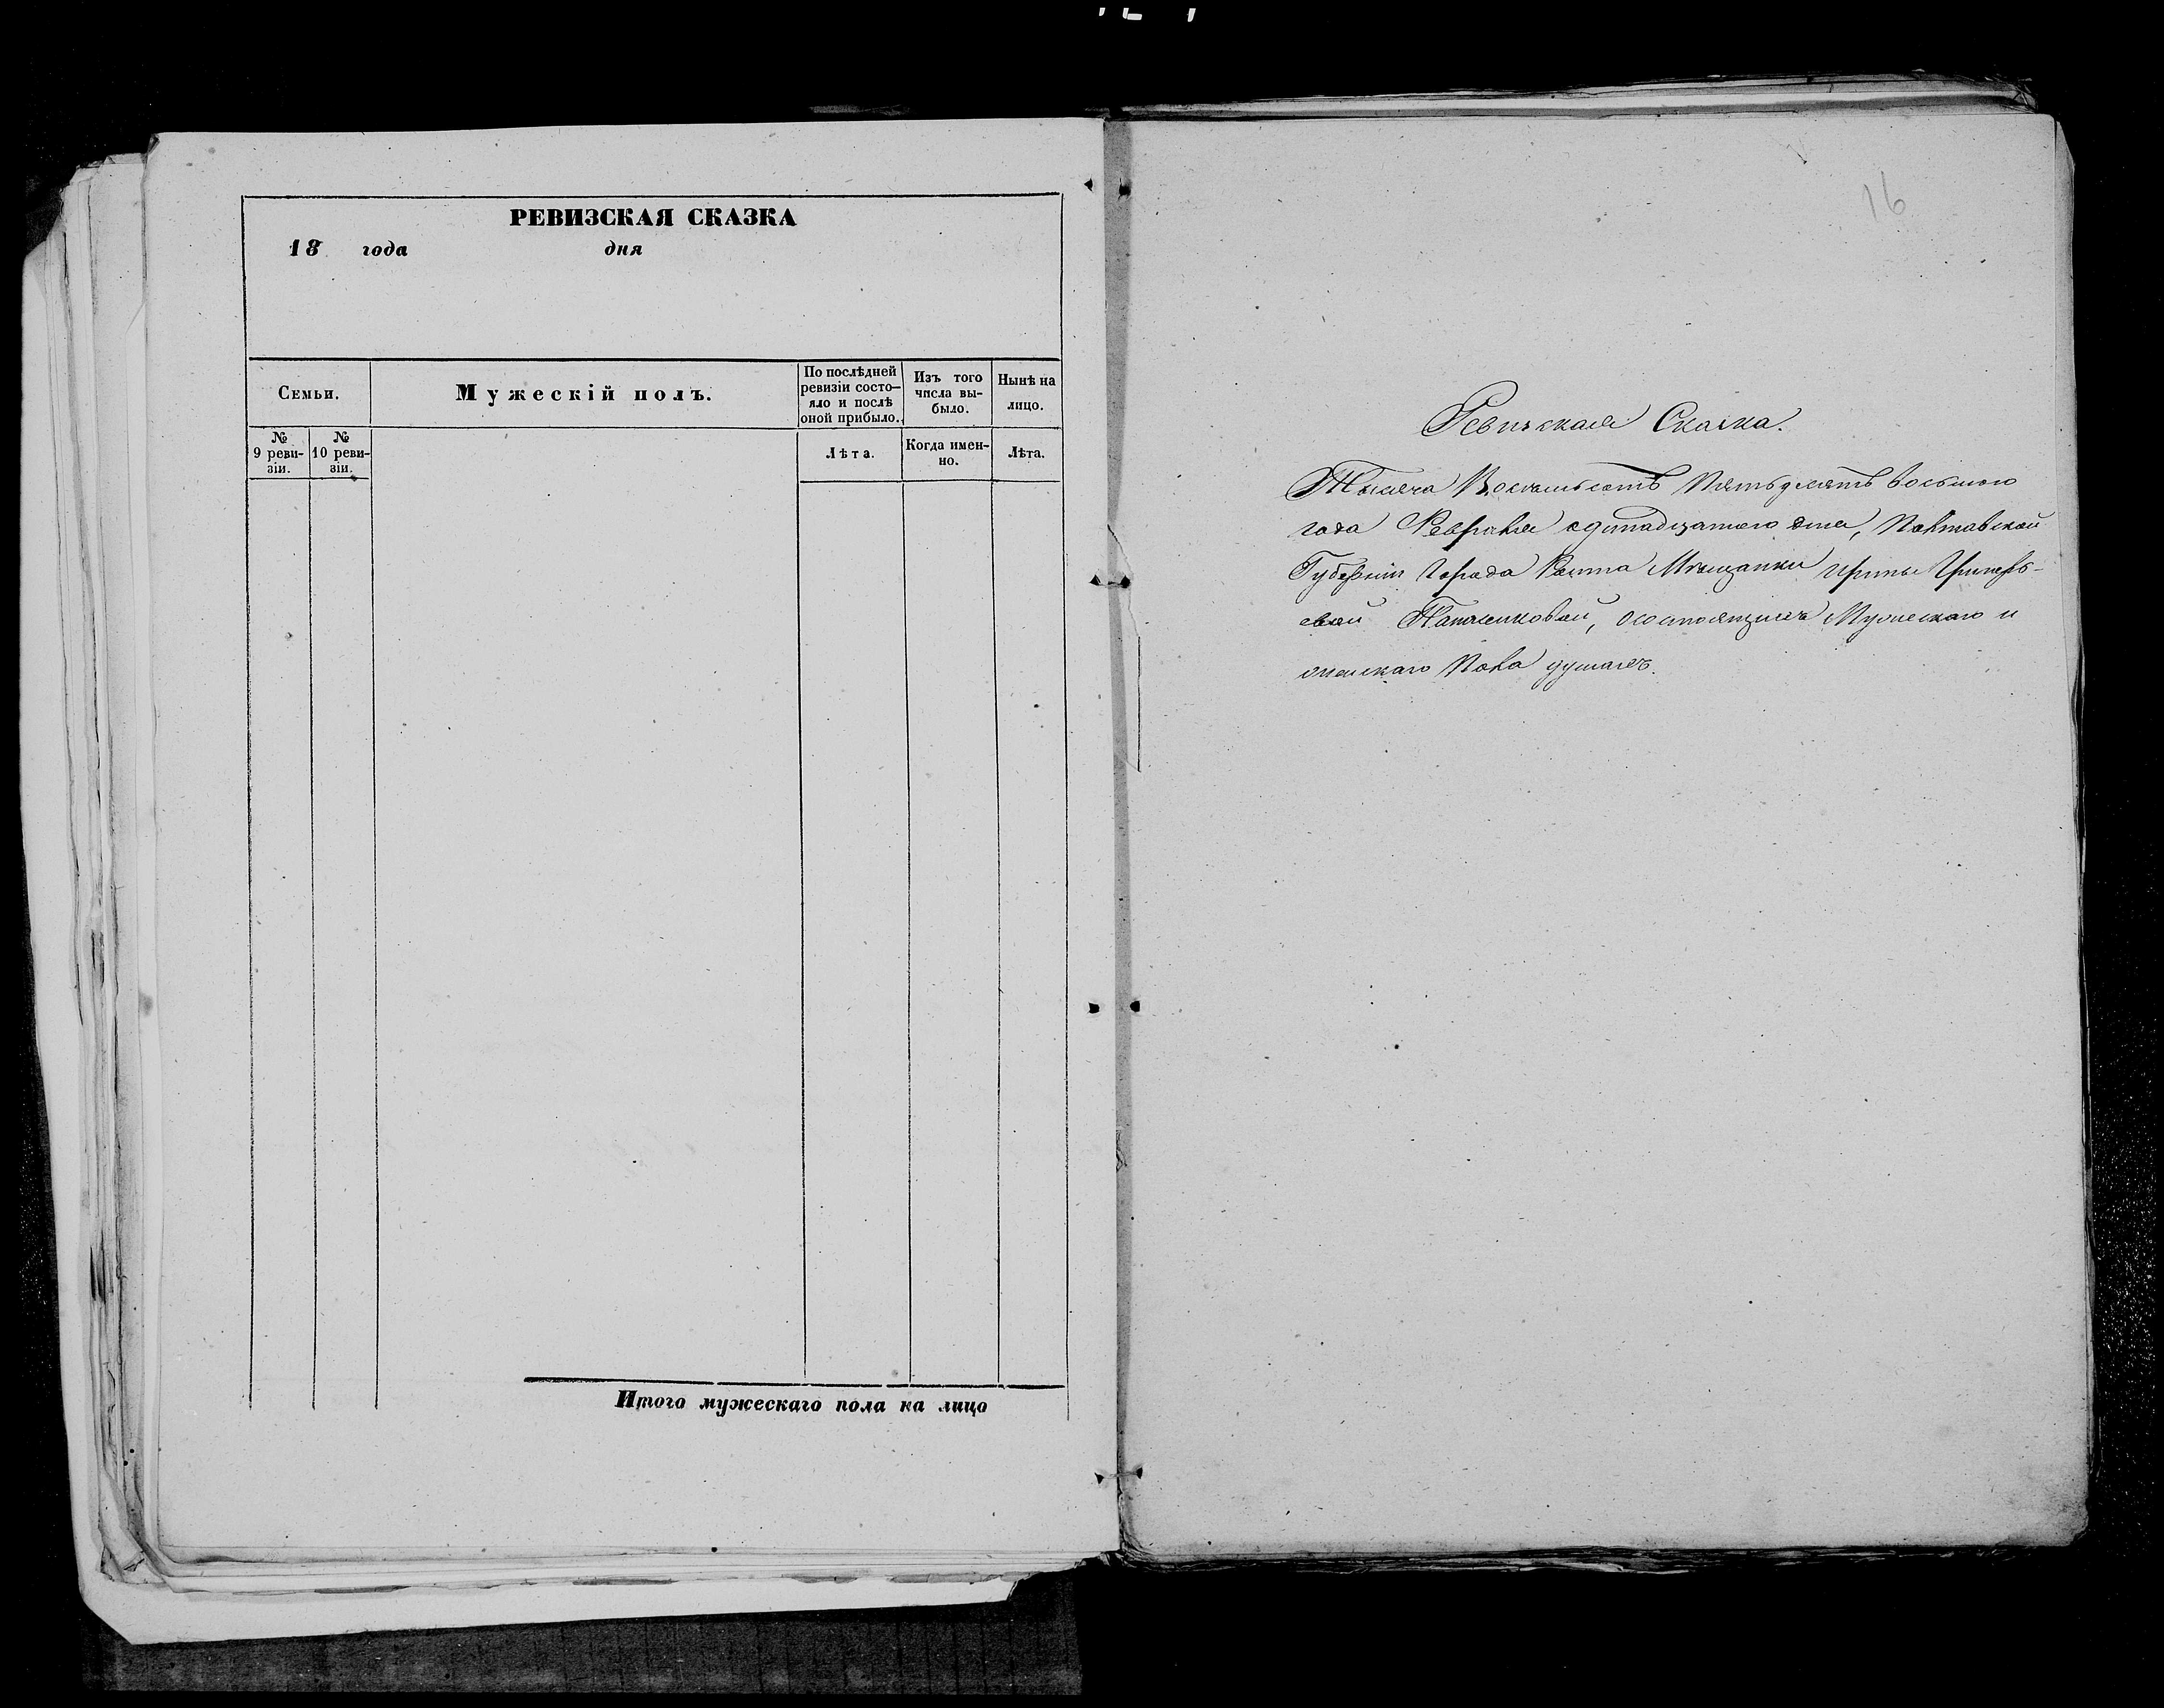 РЕВИЗСКАЯ СКАЗКА
18 года дня
Семьи.
Мужескій полъ.
По послѣдней
ревизіи состо-
яло и послѣ
оной прибыло.
Изъ того
числа вы-
было.
Нынѣ на
лицо.
№
9 реви-
зіи.
№
10 реви-
зіи.
Лѣта.
Когда имен-
но.
Лѣта.
Итого мужескаго пола на лицо
16
Ревизская Сказка.
Тысяча Восемьсотъ Пятьдесятъ восьмого
года Февраля одинадцатого дня, Полтавской
Губерніи Города Мѣщанки Ирины Григорь-
евой, осостоящихъ Мужескаго и
женскаго Пола душахъ.